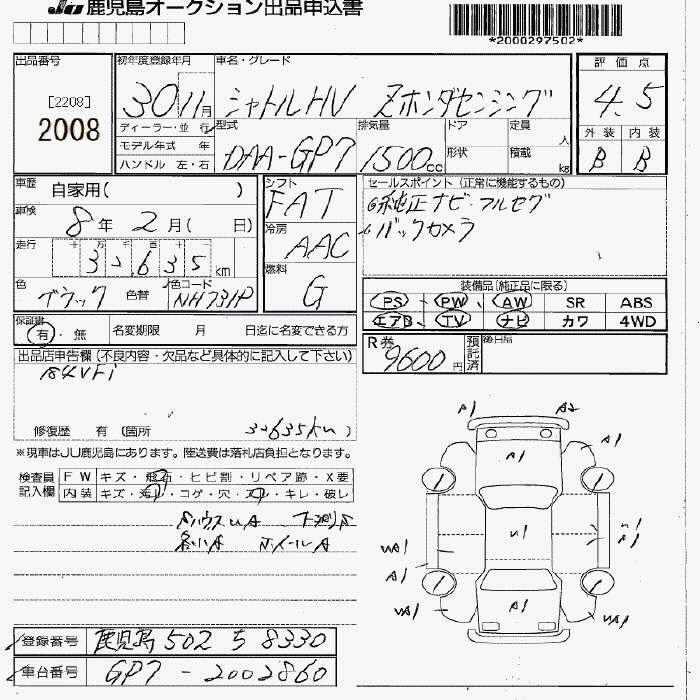 JU 鹿児島オークション出品申込書
*2000297502*
出品番号
[2208]
2008
初年度登録年月
30 11月
車名・グレード
シャトルHV Zホンダセンシング
評価点
4.5
外装 内装
B B
ディーラー・並 行
モデル年式 年
ハンドル 左・右
型式
DAA-GP7
排気量
1500cc
ドア
形状
定員 人
積載 kg
車歴 自家用( )
車検 8年 2月( 日)
走行 十 万 千 百 十
32,635 km
色 ブラック 色替
色コード NH731P
シフト
FAT
冷房
AAC
燃料
G
セールスポイント (正常に機能するもの)
純正ナビ・フルセグ
バックカメラ
装備品(純正品に限る)
PS PW AW SR ABS
エアB TV ナビ カワ 4WD
保証書
有・無
名変期限 月 日迄に名変できる方
R券 9600円
預託済
後日品
出品店申告欄(不良内容・欠品など具体的に記入して下さい)
修復歴 有(箇所 )
32635km
※現車はJU鹿児島にあります。陸送費は落札店負担となります。
検査員記入欄
FW キズ・飛石・ヒビ割・リペア跡・X要
内装 キズ・汚レ・コゲ・穴・スレ・キレ・破レ
ホイールA
A1 A2
A1
A1
A1
A1
A1
登録番号 鹿児島 502 ち 8330
車台番号 GP7-2002860